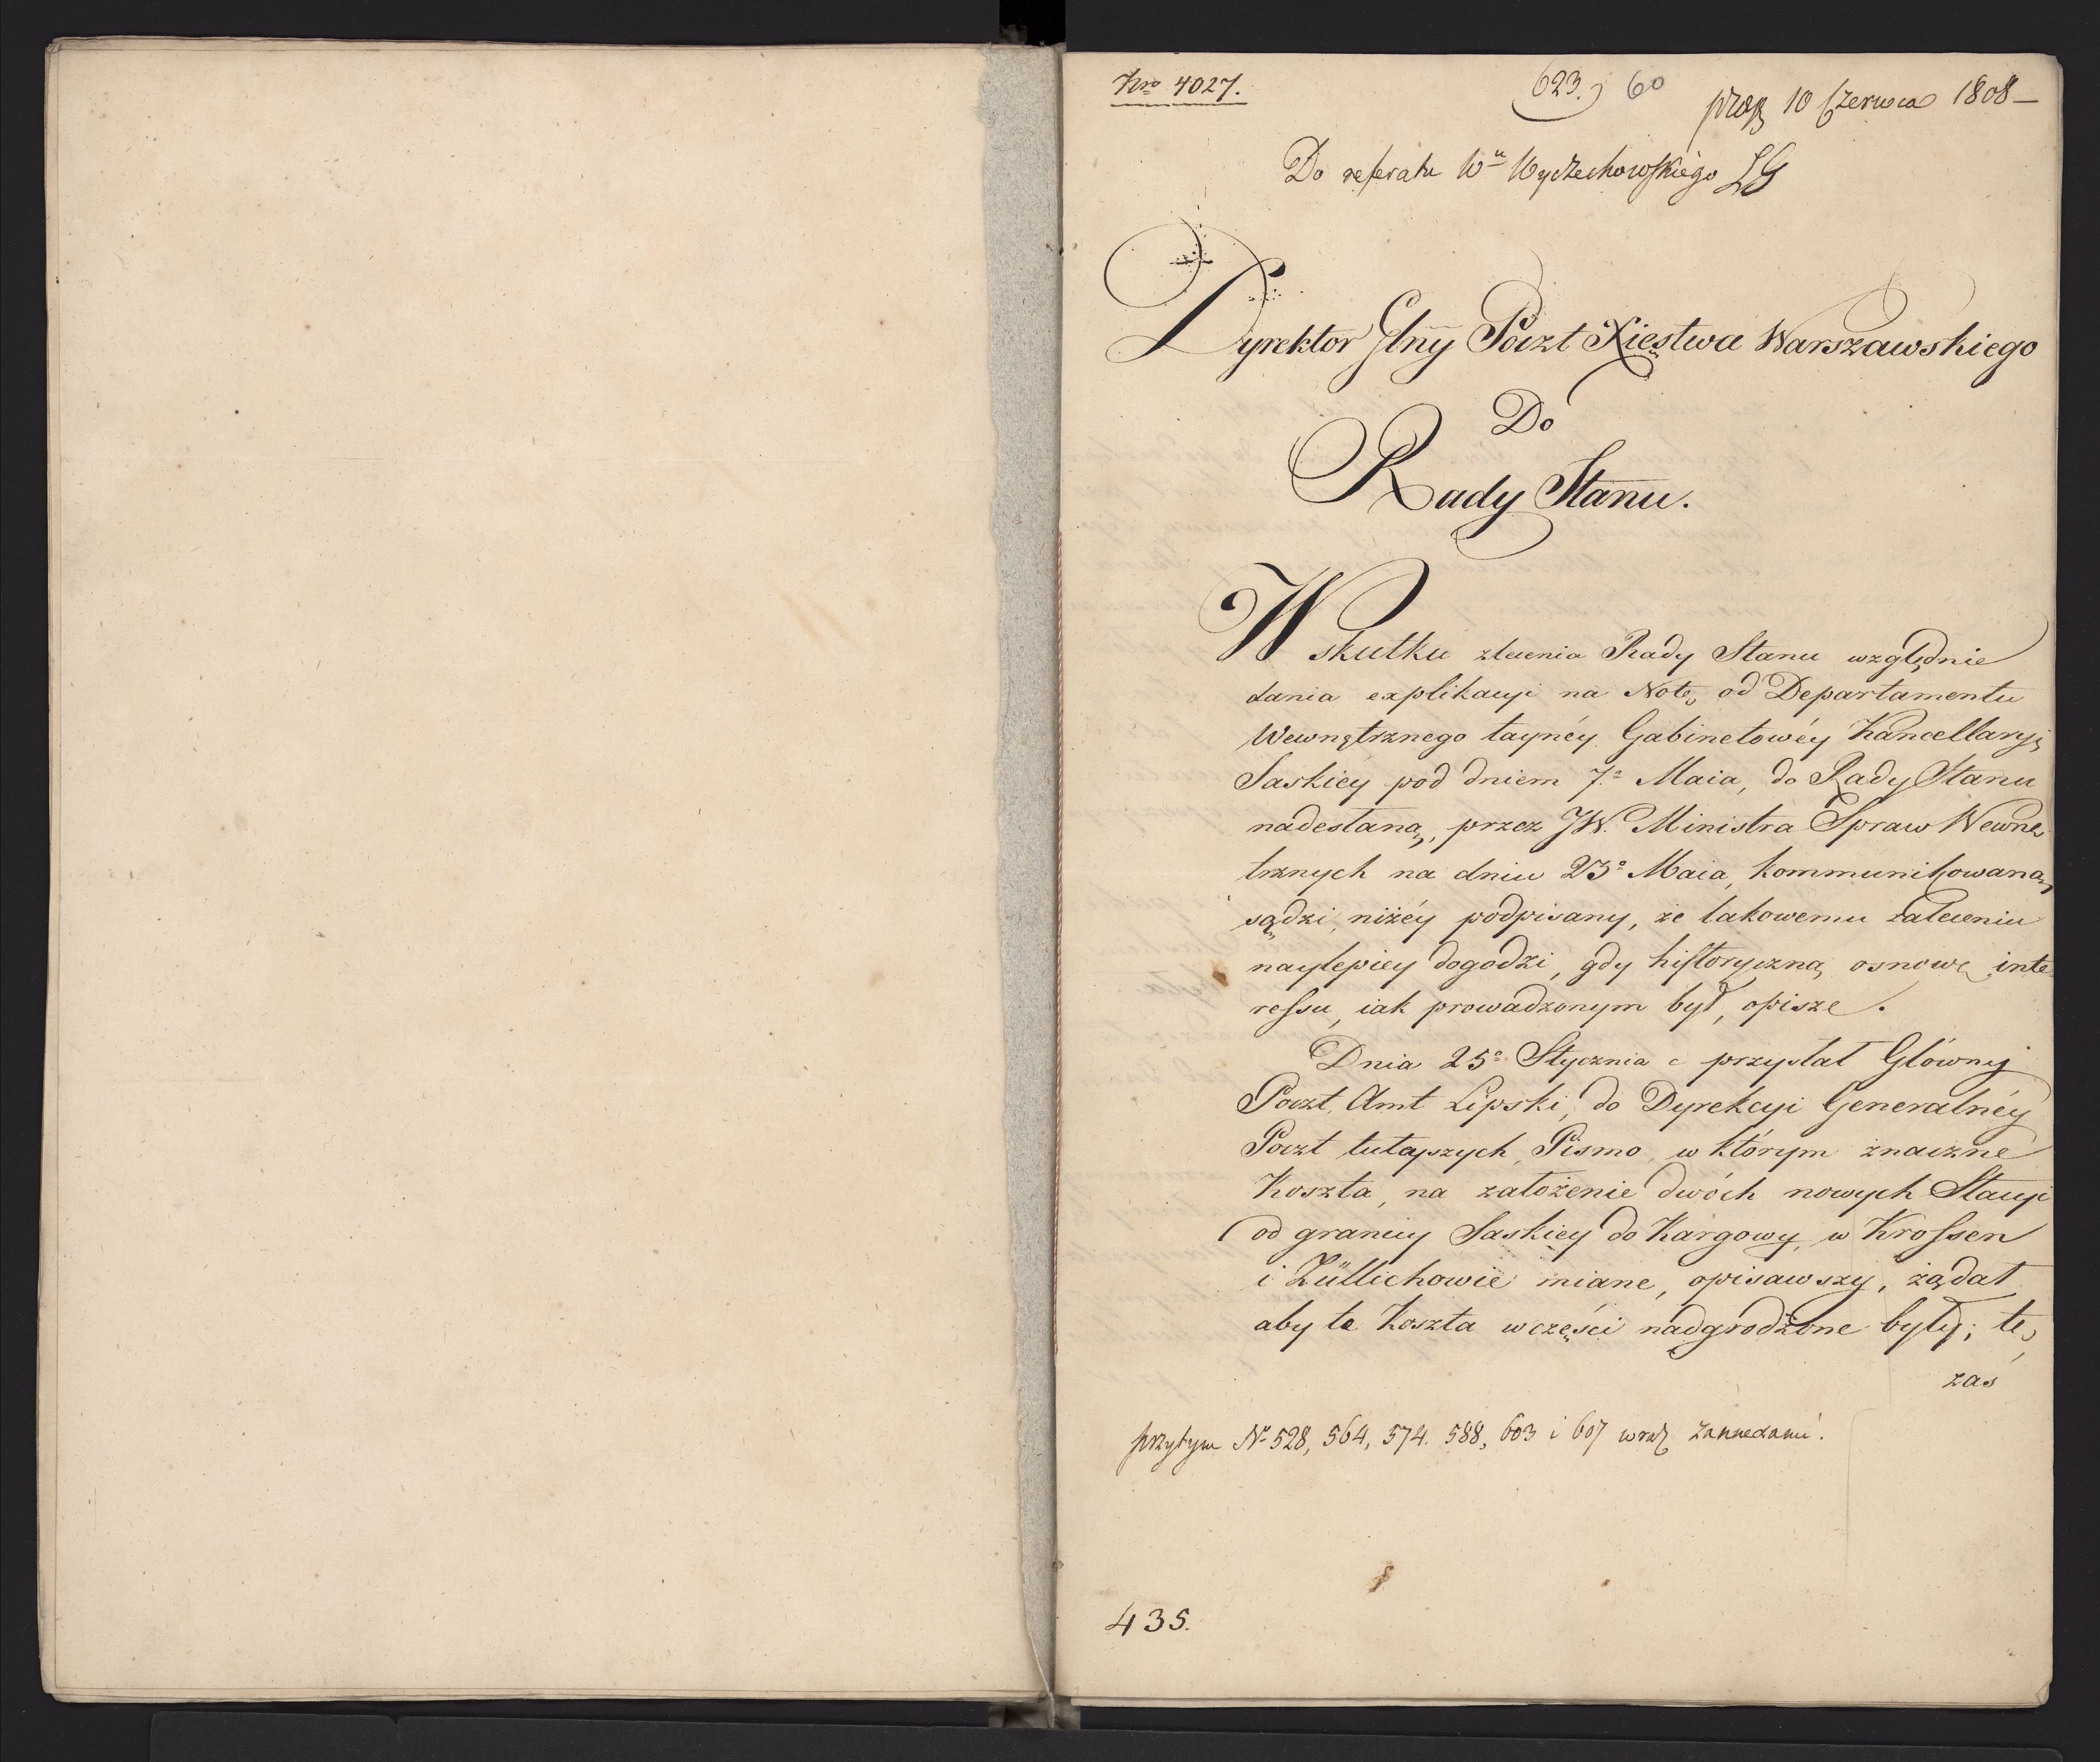 Nro 4027.
623. 60
praes 10 Czerwca 1808 —
Do referatu Wo Wyczechowskiego LG
Dyrektor Glny Poczt Xięstwa Warszawskiego
Do
Rady Stanu.
W skutku zlecenia Rady Stanu względnie
dania explikacyi na Notę, od Departamentu
Wewnętrznego taynéy Gabinetowéy Kancellaryi
Saskiey pod dniem 7o Maia, do Rady Stanu
nadesłaną, przez JW. Ministra Spraw Wewnę
trznych na dniu 23o Maia, kommunikowaną,
sądzi, niżéy podpisany, że takowemu zaleceniu
naylepiey dogodzi, gdy historyczną osnowę inte-
ressu, iak prowadzonym był, opisze.
Dnia 25o Stycznia c przysłał Główny
Poczt Amt Lipski, do Dyrekcyi Generalnéy
Poczt tutayszych, Pismo, w którym znaczne
Koszta, na założenie dwóch nowych Stacyi
od granicy Saskiey do Kargowy, w Krossen
i Züllichowie miane, opisawszy, żądał
aby te Koszta w części nadgrodzone były; tę,
zaś
przytym No 528, 564, 574. 588, 603 i 607 wraz z annexami.
435.